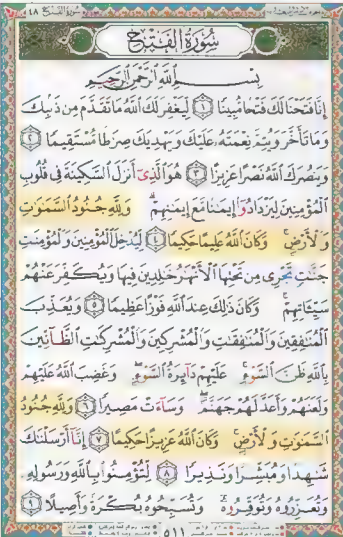 سُورَةُ الفَتْحِ
بِسْمِ اللَّهِ الرَّحْمَٰنِ الرَّحِيمِ
إِنَّا فَتَحْنَا لَكَ فَتْحًا مُّبِينًا ١ لِّيَغْفِرَ لَكَ اللَّهُ مَا تَقَدَّمَ مِن ذَنبِكَ
وَمَا تَأَخَّرَ وَيُتِمَّ نِعْمَتَهُ عَلَيْكَ وَيَهْدِيَكَ صِرَٰطًا مُّسْتَقِيمًا ٢
وَيَنصُرَكَ اللَّهُ نَصْرًا عَزِيزًا ٣ هُوَ الَّذِي أَنزَلَ السَّكِينَةَ فِي قُلُوبِ
الْمُؤْمِنِينَ لِيَزْدَادُوا إِيمَٰنًا مَّعَ إِيمَٰنِهِمْ وَلِلَّهِ جُنُودُ السَّمَٰوَٰتِ
وَالْأَرْضِ وَكَانَ اللَّهُ عَلِيمًا حَكِيمًا ٤ لِّيُدْخِلَ الْمُؤْمِنِينَ وَالْمُؤْمِنَٰتِ
جَنَّٰتٍ تَجْرِي مِن تَحْتِهَا الْأَنْهَٰرُ خَٰلِدِينَ فِيهَا وَيُكَفِّرَ عَنْهُمْ
سَيِّـَٔاتِهِمْ وَكَانَ ذَٰلِكَ عِندَ اللَّهِ فَوْزًا عَظِيمًا ٥ وَيُعَذِّبَ
الْمُنَٰفِقِينَ وَالْمُنَٰفِقَٰتِ وَالْمُشْرِكِينَ وَالْمُشْرِكَٰتِ الظَّانِّينَ
بِاللَّهِ ظَنَّ السَّوْءِ عَلَيْهِمْ دَائِرَةُ السَّوْءِ وَغَضِبَ اللَّهُ عَلَيْهِمْ
وَلَعَنَهُمْ وَأَعَدَّ لَهُمْ جَهَنَّمَ وَسَاءَتْ مَصِيرًا ٦ وَلِلَّهِ جُنُودُ
السَّمَٰوَٰتِ وَالْأَرْضِ وَكَانَ اللَّهُ عَزِيزًا حَكِيمًا ٧ إِنَّا أَرْسَلْنَٰكَ
شَٰهِدًا وَمُبَشِّرًا وَنَذِيرًا ٨ لِّتُؤْمِنُوا بِاللَّهِ وَرَسُولِهِ
وَتُعَزِّرُوهُ وَتُوَقِّرُوهُ وَتُسَبِّحُوهُ بُكْرَةً وَأَصِيلًا ٩
٥١١